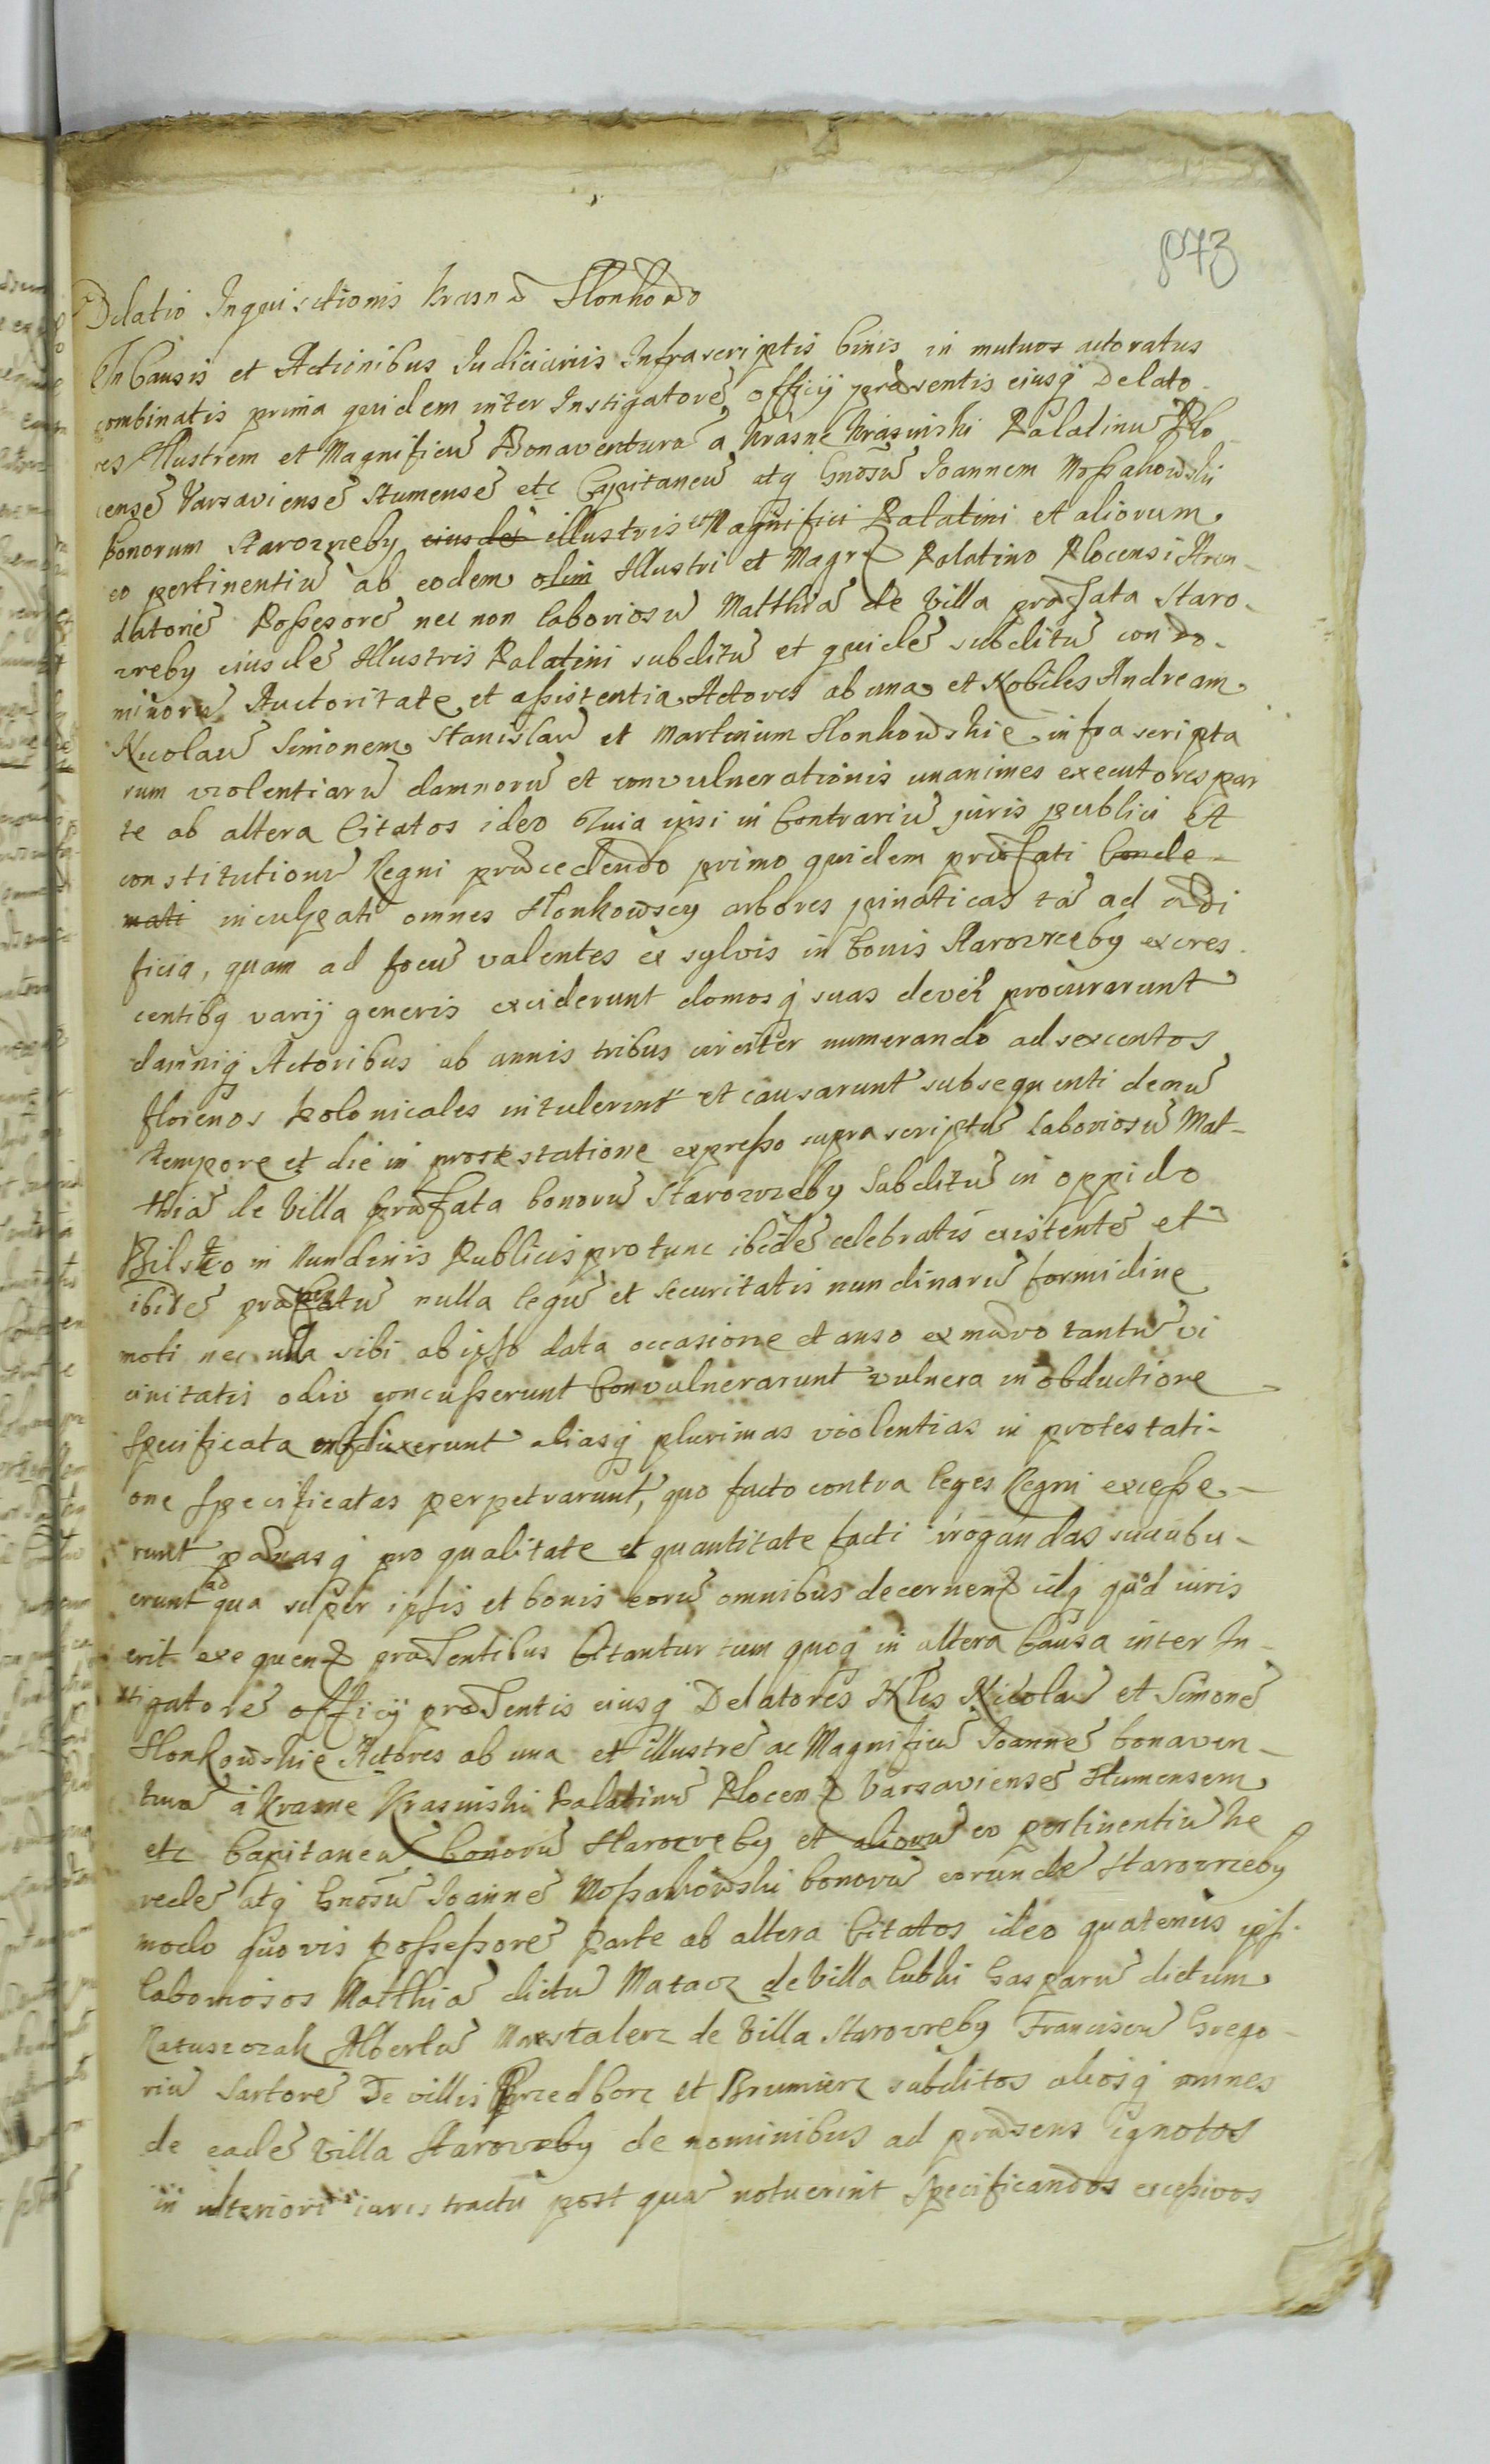 873
Delatio Inquisitionis Krasne Słonkowo
In Causis et Actionibus Judiciariis Infrascriptis binis in mutuos actoratus
combinatis prima quidem inter Instigatorē officij præsentis eiusq Delato-
res Illustrem et Magnificū Bonaventurā a Krasne Krasinski Palatinū Plo-
censē Varsaviensē Stumensē etc Capitaneū atq Gnosū Joannem Mossakowski
bonorum Starozreby eiusdē illustris et Magnifici Palatini et aliorum
eo pertinentiū ab eodem olim Illustri et Magco Palatino Plocensi Aren-
datoriē Possesorē nec non laboriosū Matthiā de Villa præfata Staro-
zreby eiusdē Illustris Palatini subditū et quidē subditū cum do-
minorū Auctoritate et assistentia Actores ab una et Nobiles Andream
Nicolaū Simonem Stanislaū et Martinum Słonkowskie infra scripta
rum violentiarū damnorū et convulnerationis unanimes executores par
te ab altera Citatos ideo Quia ipsi in Contrariū juris publici et
constitutionū Regni præcedendo primo quidem præfati Conde-
mati inculpati omnes Słonkowscy arbores pinaticas tā ad ædi
ficia, quam ad focū valentes ex sylvis in bonis Starozreby excres-
centibq varij generis exciderunt domosq suas devehi procurarunt
damniq Actoribus ab annis tribus circiter numerando ad sexcentos
florenos Polonicales intulerunt et causarunt subsequenti demū
tempore et die in protestatione expresso supra scriptū laboriosū Mat-
thiā de Villa præfata bonorū Starozreby Subditū in oppido
Bilsko in Nundinis Publicis pro tunc ibidē celebratis existentē et
ibidē nulla legū et securitatis nundinarū formidine
moti nec ulla sibi ab ipso data occasione et anso ex mero tantū vi
cinitatis odio concusserunt Convulnerarunt vulnera in obductione
Specificata infdixerunt aliasq plurimas violentias in protestati-
one specificatas perpetrarunt, quo facto contra leges Regni excesse-
runt pænasq pro qualitate et quantitate facti irogandas succubu-
erunt ad qua super ipsis et bonis eorū omnibus decernen idq quod iuris
erit exequen præsentibus Citantur tum quoq in altera Causa inter In-
stigatorē officij præsentis eiusq Delatores Nbles Nicolaū et Simonē
Słonkowskie Actores ab una et illustrē ac Magnificū Joannē bonaven-
turā à Krasne Krasinski Palatinū Plocen Varsaviensē Stumensem
etc Capitaneū bonorū Starozreby et aliorū eo pertinentiū he
redē atq Gnosū Joannē Mossakowski bonorū eorundē Starozreby
modo quovis possessorē Parte ab altera Citatos ideo quatenus ips
laboriosos Matthiā dictū Matacz de Villa Lubki Gasparū dictum
Ratuszczak Albertū Marstalerz de Villa Starozreby Franciscū Grego-
riū Sartorē De villis Przedborz et Brumierz subditos aliosq omnes
de eadē Villa Starozreby de nominibus ad præsens ignotos
in ulteriori iuris tractu post quā notuerint Specificandos excessivos